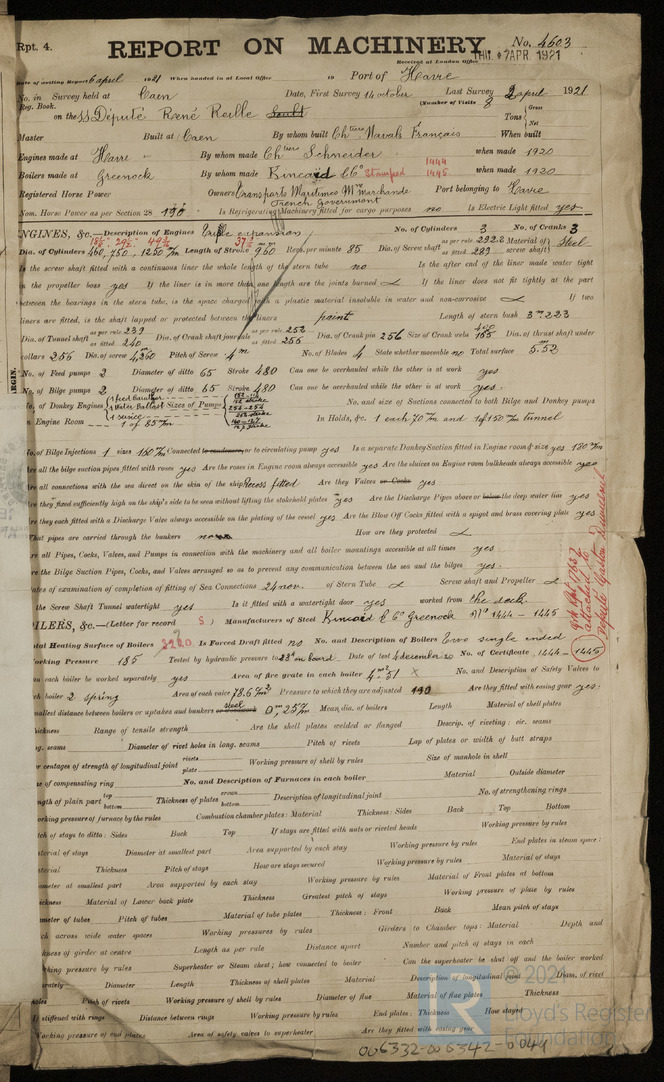 Rpt. 4.
REPORT ON MACHINERY
No. 4603
Received at London Office THU. 7 APR. 1921
Date of writing Report 6 april 1921 When handed in at Local Office 19 Port of Havre
No. in Survey held at Caen Date, First Survey 14 october Last Survey 2 april 1921
Reg. Book. (Number of Visits 8
on the SS Député René Reille Tons Gross Net
Master Built at Caen By whom built Ch^tiers Navals Français When built
Engines made at Havre By whom made Ch^tiers Schneider when made 1920
Boilers made at Greenock By whom made Kincaid & Co Stamped 1444 1445 when made 1920
Registered Horse Power Owners Transports Maritimes M^ne Marchande French Government Port belonging to Havre
Nom. Horse Power as per Section 28 190 Is Refrigerating Machinery fitted for cargo purposes no Is Electric Light fitted yes
ENGINES, &c.—Description of Engines Triple expansion No. of Cylinders 3 No. of Cranks 3
Dia. of Cylinders 460, 750, 1250 m/m Length of Stroke 960 Revs. per minute 85 Dia. of Screw shaft as per rule 292.2 as fitted 289 Material of screw shaft Steel
Is the screw shaft fitted with a continuous liner the whole length of the stern tube no Is the after end of the liner made water tight
in the propeller boss yes If the liner is in more than one length are the joints burned If the liner does not fit tightly at the part
between the bearings in the stern tube, is the space charged with a plastic material insoluble in water and non-corrosive If two
liners are fitted, is the shaft lapped or protected between the liners paint Length of stern bush
Dia. of Tunnel shaft as per rule 239 as fitted 240 Dia. of Crank shaft journals as per rule 252 as fitted 255 Dia. of Crank pin 256 Size of Crank webs Dia. of thrust shaft under
collars 256 Dia. of screw 4,260 Pitch of Screw 4 m No. of Blades 4 State whether moveable no Total surface 5.52
No. of Feed pumps 2 Diameter of ditto 65 Stroke 480 Can one be overhauled while the other is at work yes
No. of Bilge pumps 2 Diameter of ditto 65 Stroke 480 Can one be overhauled while the other is at work yes.
No. of Donkey Engines Sizes of Pumps No. and size of Suctions connected to both Bilge and Donkey pumps
In Engine Room 1 of 85 m/m In Holds, &c. 1 each 70 m/m and 1 of 150 m/m tunnel
No. of Bilge Injections 1 sizes 160 m/m Connected to condenser, or to circulating pump yes Is a separate Donkey Suction fitted in Engine room & size yes 120 m/m
Are all the bilge suction pipes fitted with roses yes Are the roses in Engine room always accessible yes Are the sluices on Engine room bulkheads always accessible yes
Are all connections with the sea direct on the skin of the ship Recess fitted Are they Valves or Cocks yes
Are they fixed sufficiently high on the ship's side to be seen without lifting the stokehold plates yes Are the Discharge Pipes above or below the deep water line yes
Are they each fitted with a Discharge Valve always accessible on the plating of the vessel yes Are the Blow Off Cocks fitted with a spigot and brass covering plate yes
What pipes are carried through the bunkers none How are they protected
Are all Pipes, Cocks, Valves, and Pumps in connection with the machinery and all boiler mountings accessible at all times yes.
Are the Bilge Suction Pipes, Cocks, and Valves arranged so as to prevent any communication between the sea and the bilges yes.
Dates of examination of completion of fitting of Sea Connections 24 nov. of Stern Tube Screw shaft and Propeller
Is the Screw Shaft Tunnel watertight yes Is it fitted with a watertight door yes worked from the deck.
BOILERS, &c.—(Letter for record S) Manufacturers of Steel Kincaid & Co Greenock No 1444 - 1445
Total Heating Surface of Boilers 3220 Is Forced Draft fitted no No. and Description of Boilers Two single ended
Working Pressure 185 Tested by hydraulic pressure to 28k on board Date of test 4 december 20 No. of Certificate 1444 - 1445
Can each boiler be worked separately yes Area of fire grate in each boiler 4 m² 51 No. and Description of Safety Valves to
each boiler 2 spring Area of each valve 78.6 Pressure to which they are adjusted 190 Are they fitted with easing gear yes.
Smallest distance between boilers or uptakes and bunkers or woodwork 0m,257 Mean dia. of boilers Length Material of shell plates
Thickness Range of tensile strength Are the shell plates welded or flanged Descrip. of riveting: cir. seams
long. seams Diameter of rivet holes in long. seams Pitch of rivets Lap of plates or width of butt straps
Per centages of strength of longitudinal joint rivets plate Working pressure of shell by rules Size of manhole in shell
Size of compensating ring No. and Description of Furnaces in each boiler Material Outside diameter
Length of plain part top bottom Thickness of plates crown bottom Description of longitudinal joint No. of strengthening rings
Working pressure of furnace by the rules Combustion chamber plates: Material Thickness: Sides Back Top Bottom
Pitch of stays to ditto: Sides Back Top If stays are fitted with nuts or riveted heads Working pressure by rules
Material of stays Diameter at smallest part Area supported by each stay Working pressure by rules End plates in steam space:
Material Thickness Pitch of stays How are stays secured Working pressure by rules Material of stays
Diameter at smallest part Area supported by each stay Working pressure by rules Material of Front plates at bottom
Thickness Material of Lower back plate Thickness Greatest pitch of stays Working pressure of plate by rules
Diameter of tubes Pitch of tubes Material of tube plates Thickness: Front Back Mean pitch of stays
Pitch across wide water spaces Working pressures by rules Girders to Chamber tops: Material Depth and
thickness of girder at centre Length as per rule Distance apart Number and pitch of stays in each
Working pressure by rules Superheater or Steam chest; how connected to boiler Can the superheater be shut off and the boiler worked
separately Diameter Length Thickness of shell plates Material Description of longitudinal joint Diam. of rivet
holes Pitch of rivets Working pressure of shell by rules Diameter of flue Material of flue plates Thickness
If stiffened with rings Distance between rings Working pressure by rules End plates: Thickness How stayed
Working pressure of end plates Area of safety valves to superheater Are they fitted with easing gear
© 2021
Lloyd's Register
Foundation
006332-006342-0044